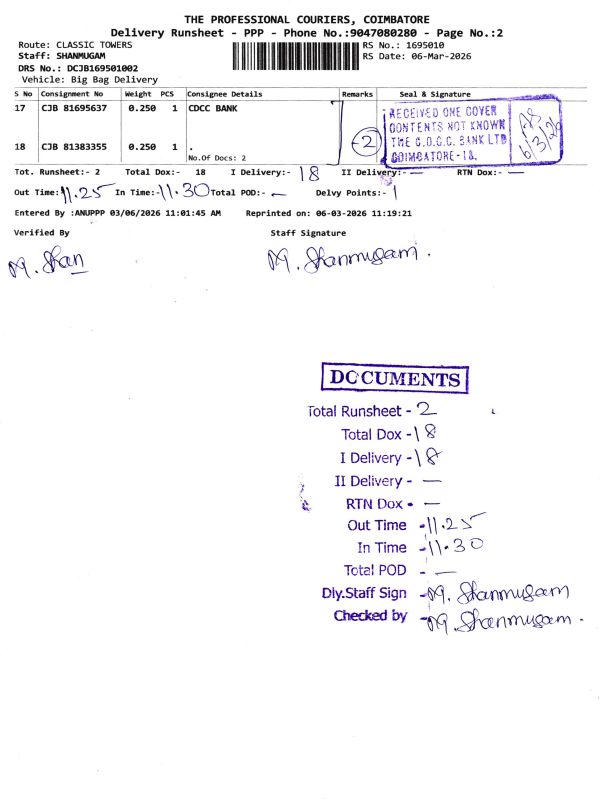 THE PROFESSIONAL COURIERS, COIMBATORE
Delivery Runsheet - PPP - Phone No.:9047080280 - Page No.:2
Route: CLASSIC TOWERS
RS No.: 1695010
Staff: SHANMUGAM
RS Date: 06-Mar-2026
DRS No.: DCJB169501002
Vehicle: Big Bag Delivery
S No Consignment No Weight PCS Consignee Details Remarks Seal & Signature
17 CJB 81695637 0.250 1 CDCC BANK
RECEIVED ONE COVER
CONTENTS NOT KNOWN
THE C.D.C.C. BANK LTD
COIMBATORE-18.
6/3/26
2
18 CJB 81383355 0.250 1 .
No.Of Docs: 2
Tot. Runsheet:- 2 Total Dox:- 18 I Delivery:- 18 II Delivery:- — RTN Dox:- —
Out Time:- 11.25 In Time:- 11.30 Total POD:- — Delvy Points:- 1
Entered By :ANUPPP 03/06/2026 11:01:45 AM Reprinted on: 06-03-2026 11:19:21
Verified By Staff Signature
M. Shan
M. Shanmugam.
DOCUMENTS
Total Runsheet - 2
Total Dox - 18
I Delivery - 18
II Delivery - —
RTN Dox - —
Out Time - 11.25
In Time - 11.30
Total POD - —
Dly.Staff Sign - M. Shanmugam
Checked by - M. Shanmugam.